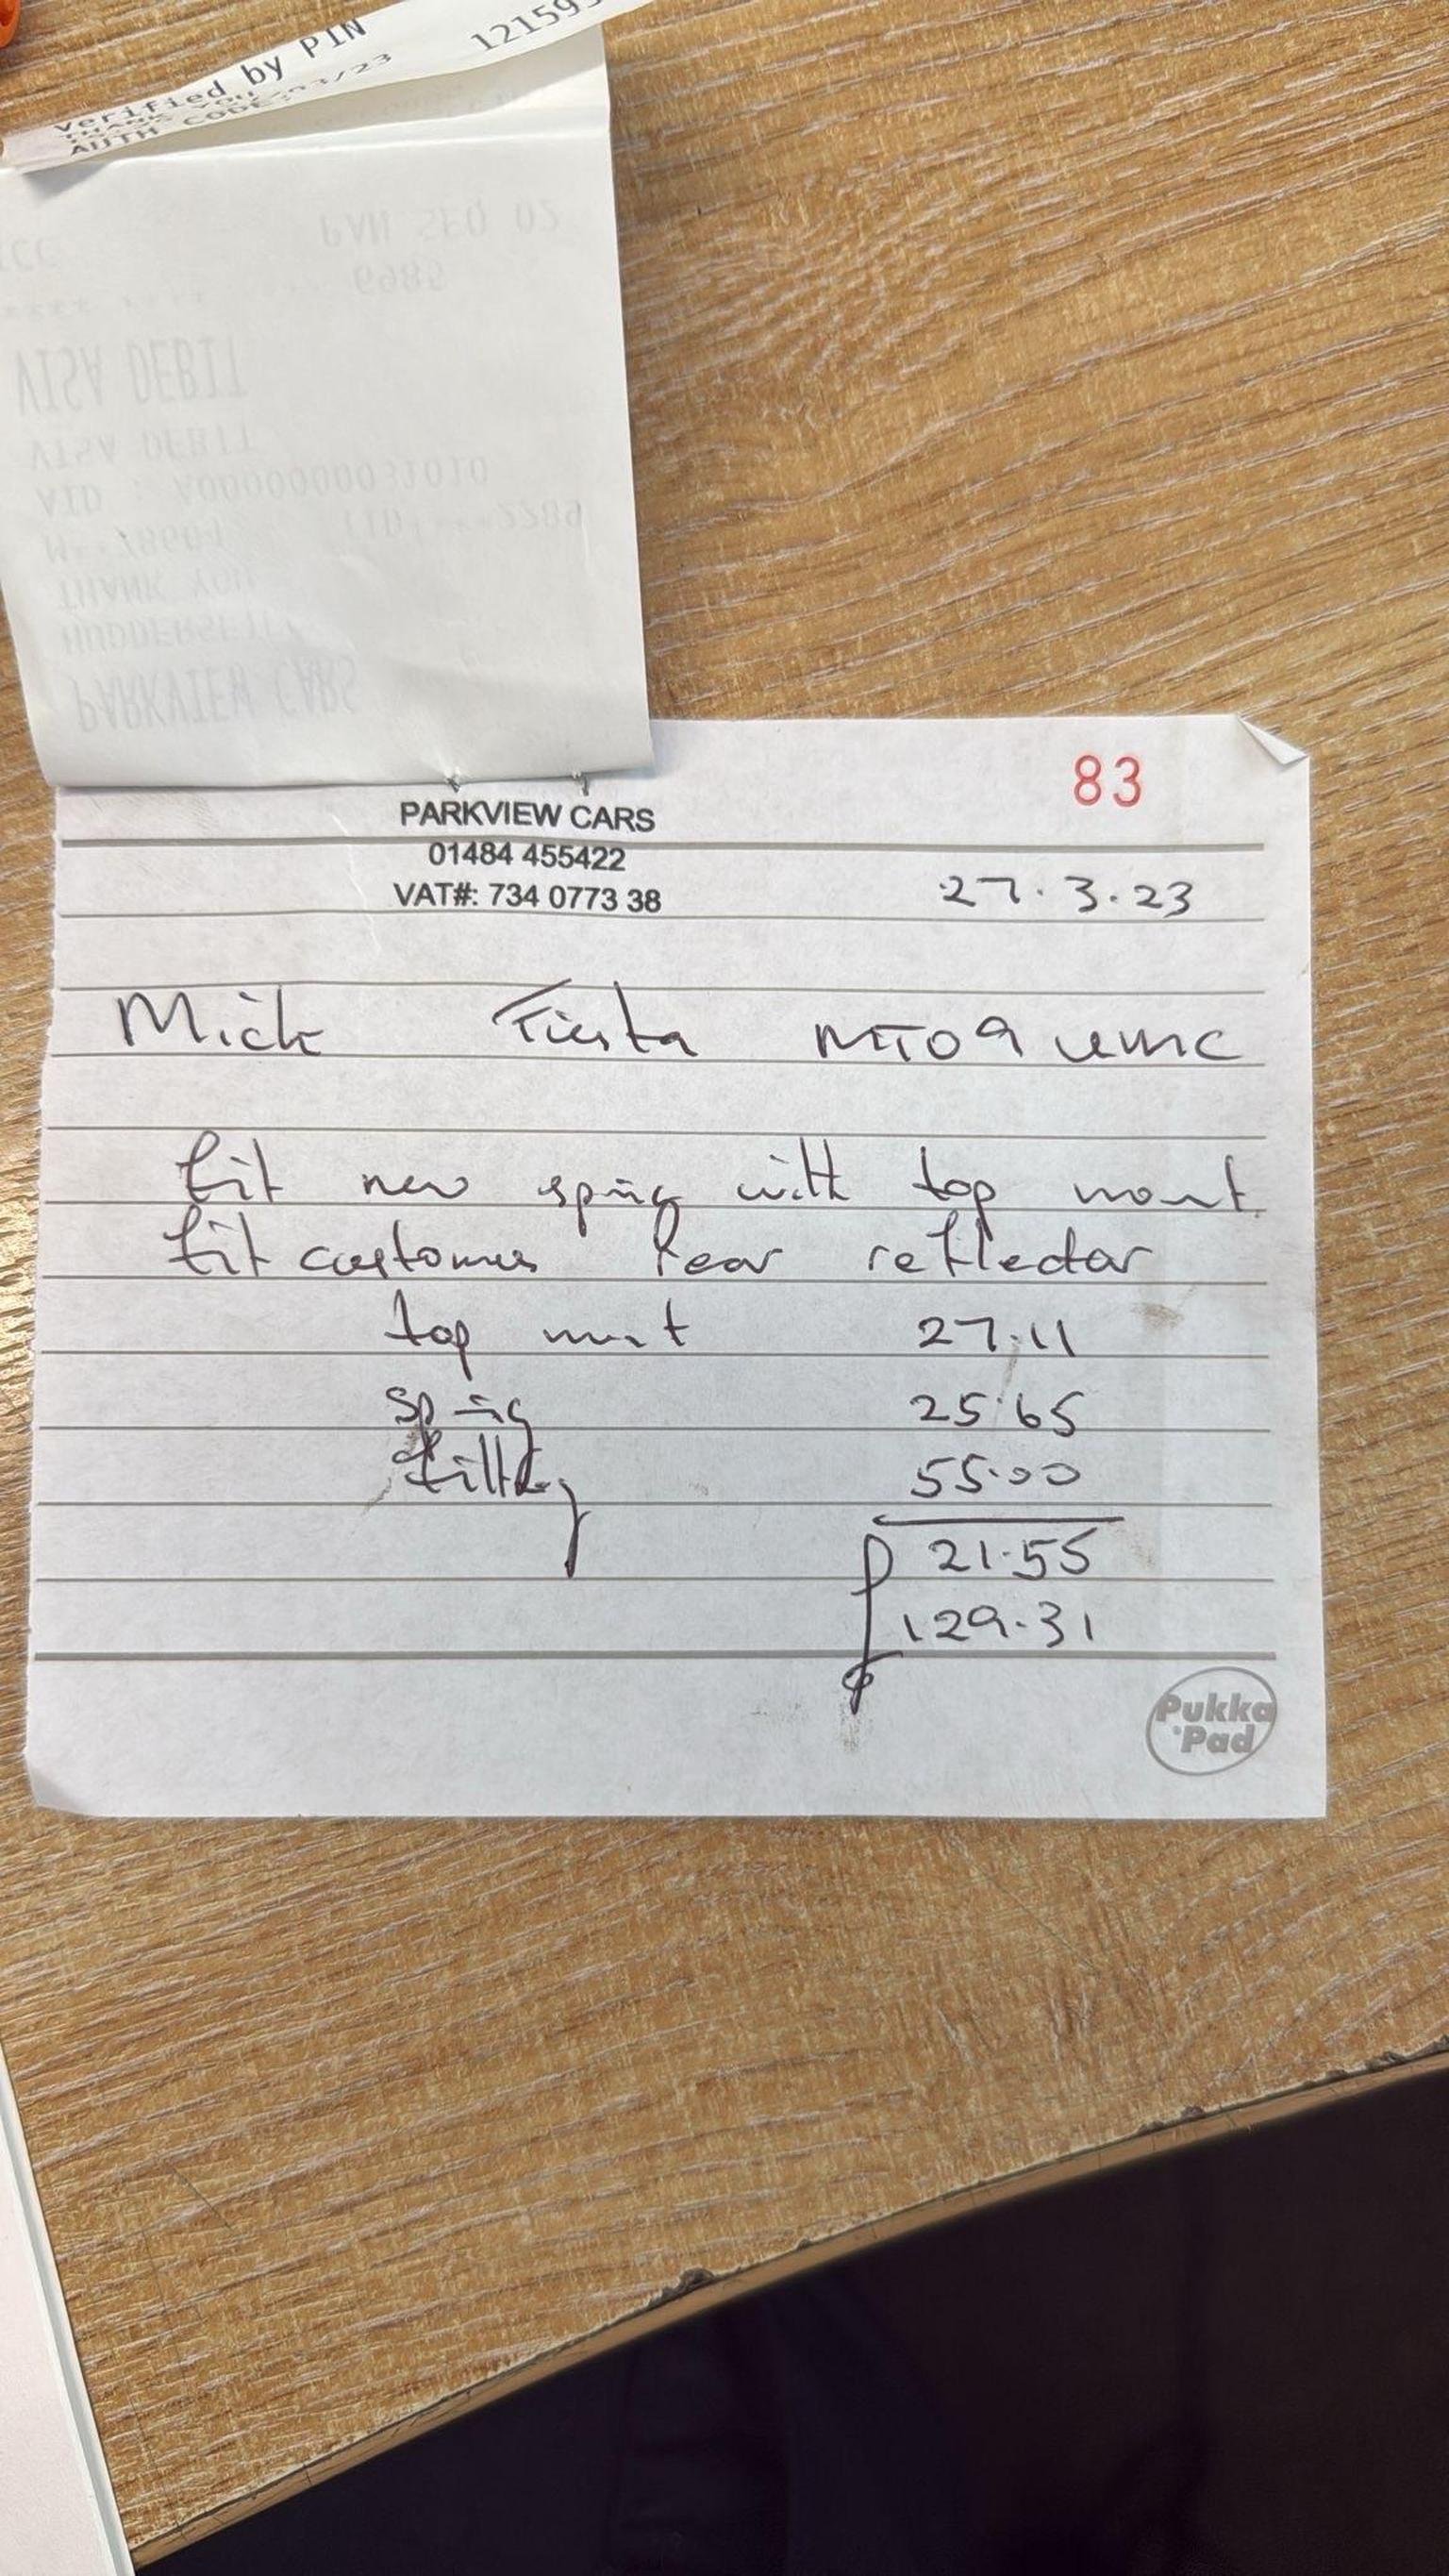 Verified by PIN
THANK YOU
AUTH CODE:
PAN SEQ 02
6985
VISA DEBIT
VISA DEBIT
AID : A0000000031010
THANK YOU
PARKVIEW CARS
83
PARKVIEW CARS
01484 455422
VAT#: 734 0773 38
27.3.23
Mick Fiesta MT09 UMC
fit new spring with top mount
fit customers Rear reflector
top mount 27.11
Spring 25.65
fitting 55.00
21.55
129.31
Pukka
Pad